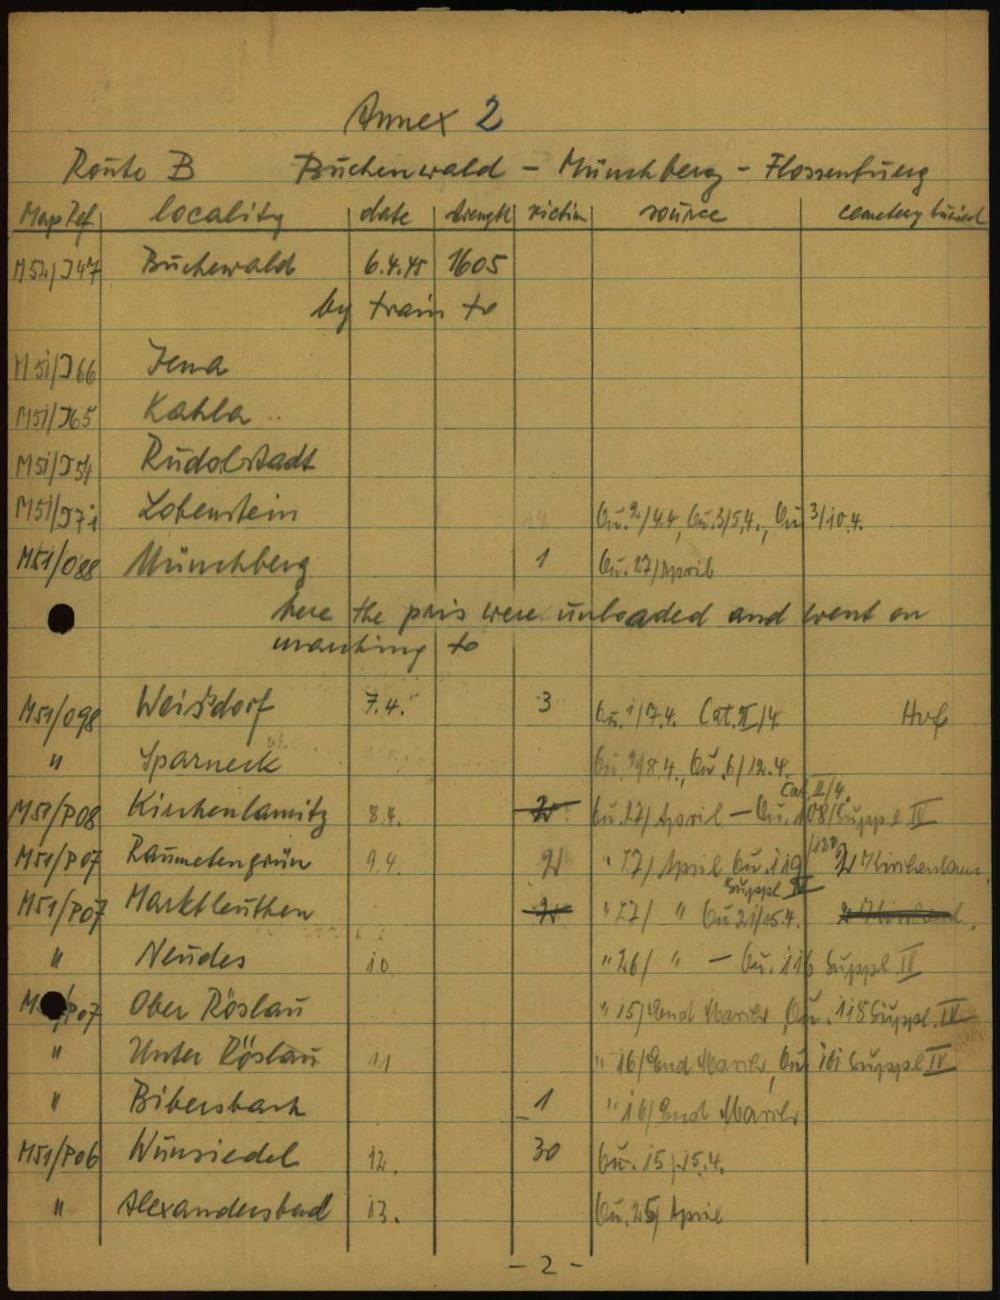 Annex 2
Route B Buchenwald - Münchberg - Flossenbuerg
Map Ref locality date strength victim source cemetery buried
M52/J47 Buchewald 6.4.45 1605
by train to
M51/J66 Jena
M51/J65 Kahla
M51/J54 Rudolstadt
M51/J71 Lobenstein Bu. 2/4.4, Bu. 3/5.4., Bu 3/10.4.
M51/O88 Münchberg 1 Bu. 27/April
here the pris were unloaded and went on
marching to
M51/O98 Weisdorf 7.4. 3 Bu. 1/7.4. Cat. II/4
" Sparneck Bu. 2/8.4., Bu. 6/12.4.
Cat. II/4.
M51/P08 Kirchenlamitz 8.4. 2 Bu. 27/April - Bu. 108/Suppl IV
M51/P07 Raumetengrün 9.4. 2 " 27/April Bu. 119/120 2 Kirchenlam.
Suppl IV
M51/P07 Marktleuthen 2 " 27/ " Bu 21/15.4.
" Neudes 10 " 26/ " - Bu. 116 Suppl IV
/P07 Ober Röslau " 15/End March, Bu. 118 Suppl. IV
" Unter Röslau 11 " 16/End March, Bu 101 Suppl IV
" Bibersbach 1 " 16/End March
M51/P06 Wunsiedel 12. 30 Bu. 15/15.4.
" Alexandersbad 13. Bu. 25/April
- 2 -